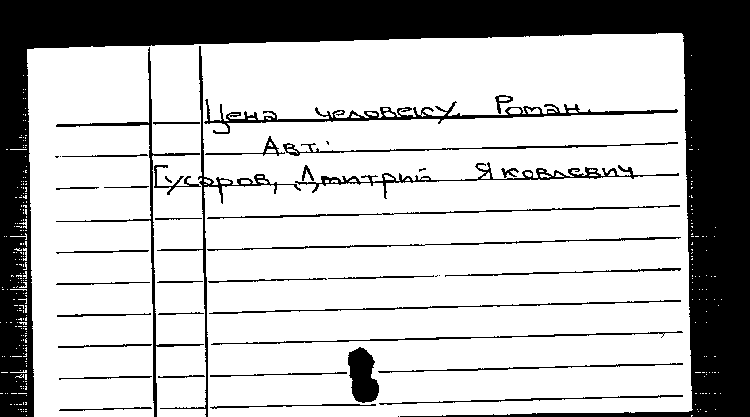 Цена человеку. Роман.
Авт.:
Гусаров, Дмитрий Яковлевич